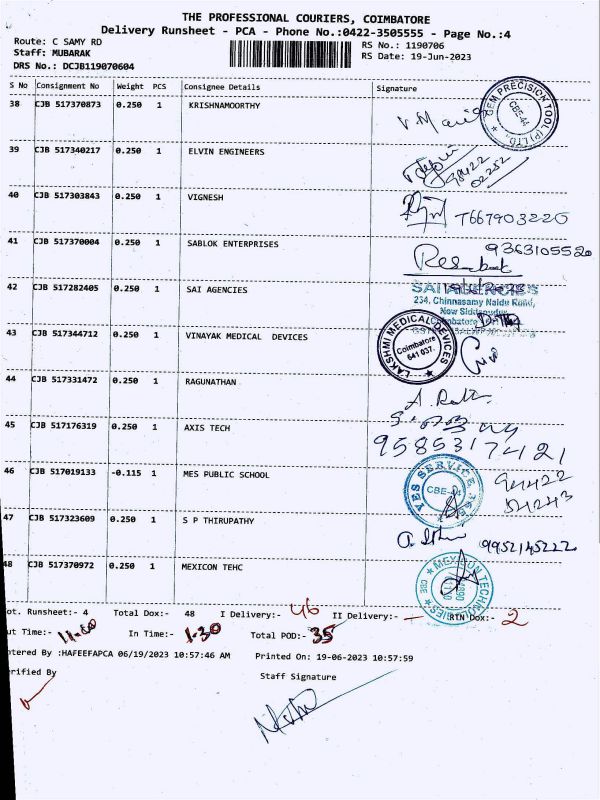 THE PROFESSIONAL COURIERS, COIMBATORE
Delivery Runsheet - PCA - Phone No.:0422-3505555 - Page No.:4
Route: C SAMY RD RS No.: 1190706
Staff: MUBARAK RS Date: 19-Jun-2023
DRS No.: DCJB119070604
S No Consignment No Weight PCS Consignee Details Signature
38 CJB 517370873 0.250 1 KRISHNAMOORTHY
GEM PRECISION TOOL (P) LTD. CBE-44
39 CJB 517340217 0.250 1 ELVIN ENGINEERS
98422
02252
40 CJB 517303843 0.250 1 VIGNESH
7667903220
41 CJB 517370004 0.250 1 SABLOK ENTERPRISES
9363105520
42 CJB 517282405 0.250 1 SAI AGENCIES
SAI AGENCIES
234, Chinnasamy Naidu Road,
New Siddhapudur
Coimbatore
43 CJB 517344712 0.250 1 VINAYAK MEDICAL DEVICES
LAKSHMI MEDICAL DEVICES Coimbatore 641 037.
44 CJB 517331472 0.250 1 RAGUNATHAN
45 CJB 517176319 0.250 1 AXIS TECH
9585317421
46 CJB 517019133 -0.115 1 MES PUBLIC SCHOOL
YES SERVICE CBE
94422
47 CJB 517323609 0.250 1 S P THIRUPATHY
9952145222
48 CJB 517370972 0.250 1 MEXICON TEHC
ot. Runsheet:- 4 Total Dox:- 48 I Delivery:- 46 II Delivery:- — RTN Dox:- 2
ut Time:- 11.00 In Time:- 1-30 Total POD:- 35
ntered By :HAFEEFAPCA 06/19/2023 10:57:46 AM Printed On: 19-06-2023 10:57:59
rified By Staff Signature